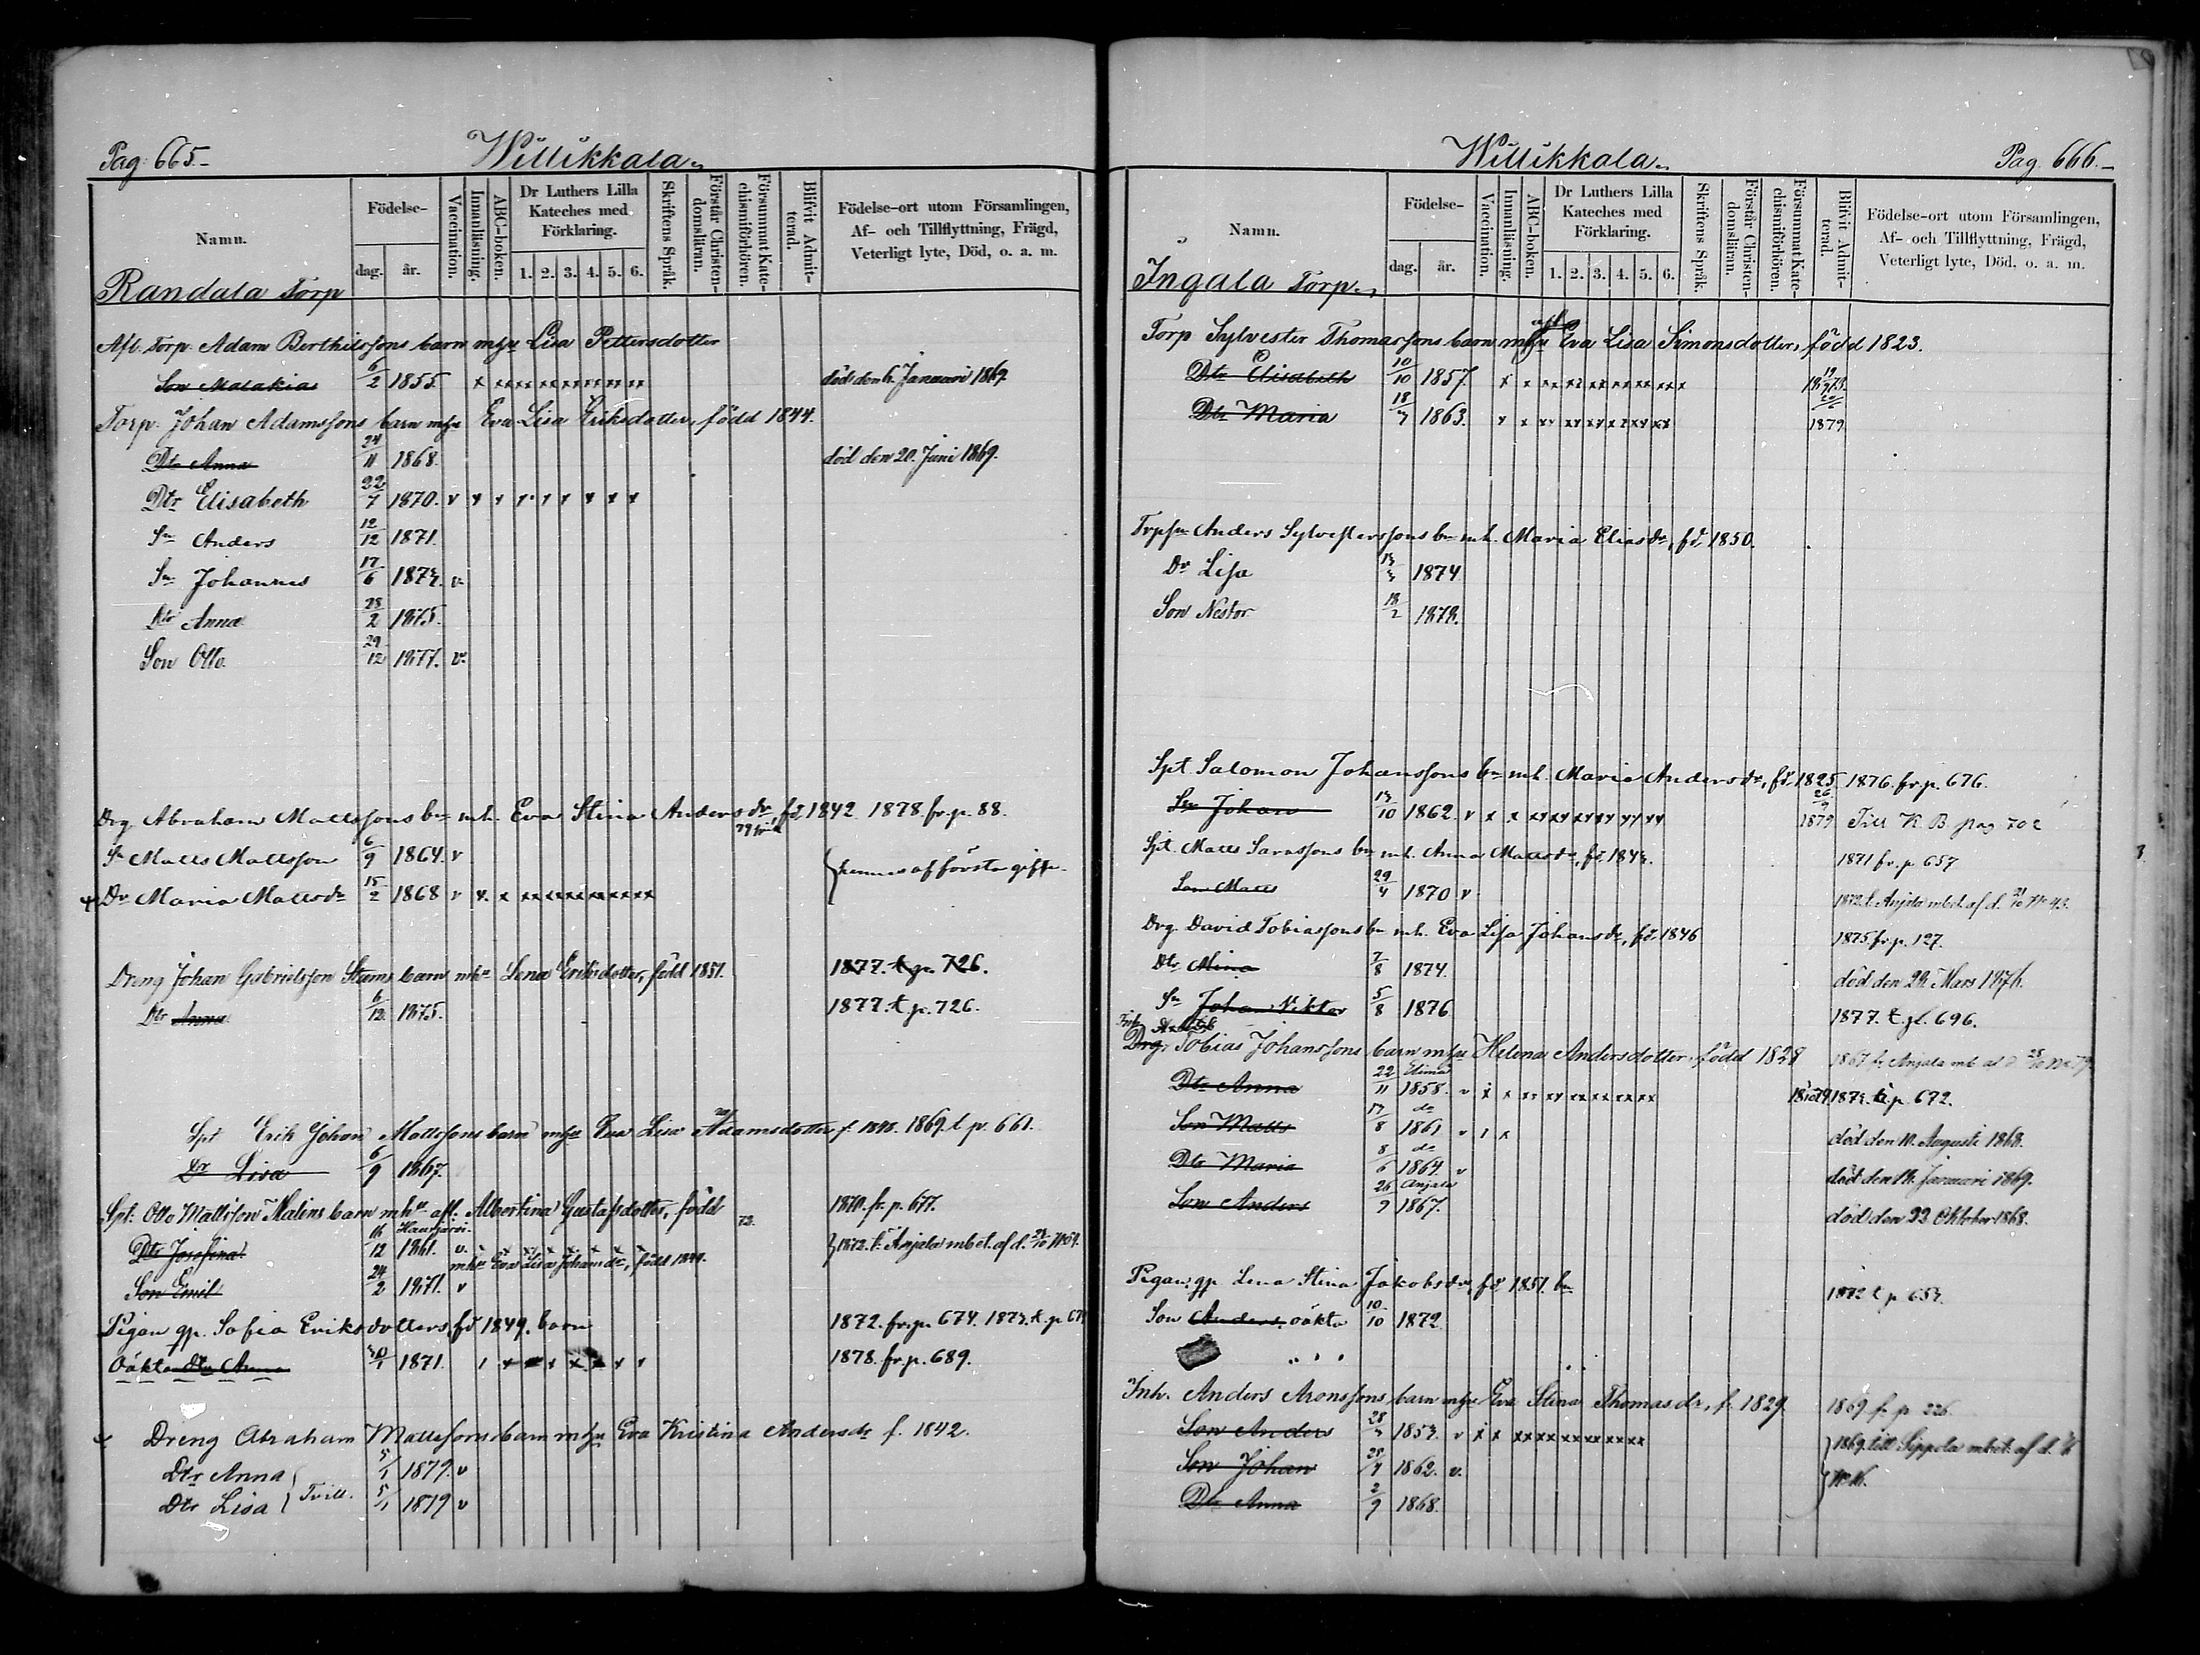 Pag: 665.
Willikkala.
Namn.
Födelse-
dag.
år.
Vaccination.
Innanläsning.
ABC-boken.
Dr Luthers Lilla Kateches med Förklaring.
1. 2. 3. 4. 5. 6.
Skriftens Språk.
Förstår Christendomsläran.
Försummat Katechismiförhören.
Blifvit Admitterad.
Födelse-ort utom Församlingen,
Af- och Tillflyttning, Frägd,
Veterligt lyte, Död, o. a. m.
Randala Torp
Afl. Torp. Adam Berthilssons barn mhu Lisa Pettersdotter
Son Malakias 6/2 1855. död den 6. Januari 1869.
Torp. Johan Adamssons barn mhu Eva Lisa Eriksdotter, född 1844.
Dtr Anna 24/11 1868. död den 20. Juni 1869.
Dtr Elisabeth 22/7 1870. v
Sn Anders 12/12 1871.
Sn Johannes 17/6 1873. v.
Dtr Anna 28/2 1875.
Son Otto 29/12 1877. v.
Drg Abraham Mattssons bn m.h. Eva Stina Anders dr fd. 1842 1878. fr. p. 88.
Sn Matts Mattsson 6/9 1864. v
Dr Maria Mattsdr 15/2 1868 v hennes af första gifte.
Dreng Johan Gabrielsson Stams barn mhu Lena Eriksdotter, född 1851. 1877. t. p. 726.
Dtr Anna 6/12. 1875. 1877. t. p. 726.
Spt Erik Johan Mattssons barn mhu Eva Lisa Adamsdotter f. 1848. 1869. t. p. 661.
Dr Lisa 6/9 1867.
Spt. Otto Mattsson Malins barn mhu afl. Albertina Gustafsdotter, född 1870. fr. p. 677.
Dtr Josefina 16/12 1861. v. Hausjärvi. 1872. t. Anjala mbet. af d.
mhu Eva Lisa Johansdr, född 1849.
Son Emil 24/2 1871. v
Pigan gp. Sofia Eriksdotters, fd 1849. barn 1872. fr. p. 674. 1873. t. p.
Oäkta Dtr Anna 1871. 1878. fr. p. 689.
Dreng Abraham Mattssons barn mhu Eva Kristina Andersdr f. 1842.
Dtr Anna 5/1 1879. v
Tvill.
Dtr Lisa 5/1 1879 v
Willikkala.
Pag. 666.
Namn.
Födelse-
dag.
år.
Vaccination.
Innanläsning.
ABC-boken.
Dr Luthers Lilla Kateches med Förklaring.
1. 2. 3. 4. 5. 6.
Skriftens Språk.
Förstår Christendomsläran.
Försummat Katechismiförhören.
Blifvit Admitterad.
Födelse-ort utom Församlingen,
Af- och Tillflyttning, Frägd,
Veterligt lyte, Död, o. a. m.
Ingala Torp.
Torp Sylvester Thomassons barn mhu afl. Eva Lisa Simonsdotter, född 1823.
Dtr Elisabeth 10/10 1857.
Dtr Maria 18/7 1863. 1879.
Trpsn Anders Sylvesterssons bn mh. Maria Eliasdr, fd. 1850.
Dr Lisa 13/3 1874
Son Nestor 18/2 1878.
Spt. Salomon Johanssons bn mh. Maria Andersdr, fd. 1825 1876. fr. p. 676.
Sn Johan 13/10 1862. v 1879 Till K. B. pag 702
Spt. Matts Sarassons bn mh. Anna Mattsdr, fd. 1843. 1871 fr. p. 657
Son Matts 29/4 1870 v 1872. t. Anjala mbet. af d.
Drg. David Tobiassons bn mh. Eva Lisa Johansdr, fd. 1846 1875 fr. p. 127.
Dtr Mina 7/8 1874. död den 28. Mars 1876.
Sn Johan Viktor 5/8 1876 1877. t. p. 696.
Drg. Tobias Johanssons barn mhu Helena Andersdotter född 1828 1867 fr. Anjala
Dtr Anna 22/11 1858. v Elimä 1873. t. p. 672.
Son Matts 17/8 1861 do död den 10. Augusti 1868.
Dtr Maria 8/6 1864. v do död den 14. Januari 1869.
Son Anders 26/9 1867. Anjala död den 23 Oktober 1868.
Pigan gp. Lena Stina Jakobsdr, fd 1851. bn 1872 t. p. 653.
Son Anders, oäkta 10/10 1872
Inh. Anders Aronssons barn mhu Eva Stina Thomasdr, f. 1829. 1869 f. p. 226
Son Anders 28/3 1853. v 1869. till Sippola mbet. af d.
Son Johan 1862. v.
Dtr Anna 2/9 1868.